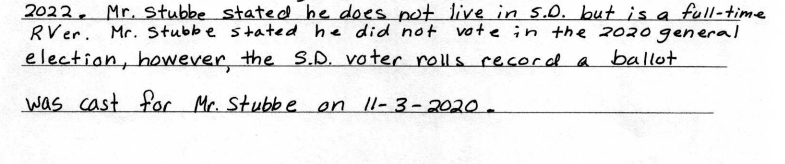 2022. Mr. Stubbe stated he does not live in S.D. but is a full-time
RVer. Mr. Stubbe stated he did not vote in the 2020 general
election, however, the S.D. voter rolls record a ballot
was cast for Mr. Stubbe on 11-3-2020.